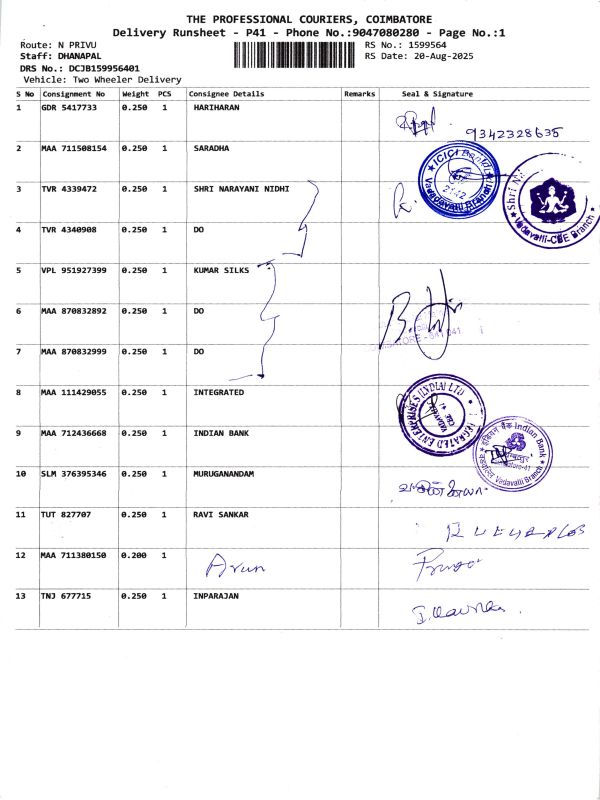 THE PROFESSIONAL COURIERS, COIMBATORE
Delivery Runsheet - P41 - Phone No.:9047080280 - Page No.:1
Route: N PRIVU RS No.: 1599564
Staff: DHANAPAL RS Date: 20-Aug-2025
DRS No.: DCJB159956401
Vehicle: Two Wheeler Delivery
S No Consignment No Weight PCS Consignee Details Remarks Seal & Signature
1 GDR 5417733 0.250 1 HARIHARAN
9342328635
2 MAA 711508154 0.250 1 SARADHA
ICICI Bank Vadavalli Branch
3 TVR 4339472 0.250 1 SHRI NARAYANI NIDHI
Shri Vadavalli-CBE Branch
4 TVR 4340908 0.250 1 DO
5 VPL 951927399 0.250 1 KUMAR SILKS
6 MAA 870832892 0.250 1 DO
7 MAA 870832999 0.250 1 DO
8 MAA 111429055 0.250 1 INTEGRATED
INTEGRATED ENTERPRISES (INDIA) LTD
9 MAA 712436668 0.250 1 INDIAN BANK
इंडियन बैंक Indian Bank Vadavalli Branch
10 SLM 376395346 0.250 1 MURUGANANDAM
11 TUT 827707 0.250 1 RAVI SANKAR
12 MAA 711380150 0.200 1 Arun
13 TNJ 677715 0.250 1 INPARAJAN